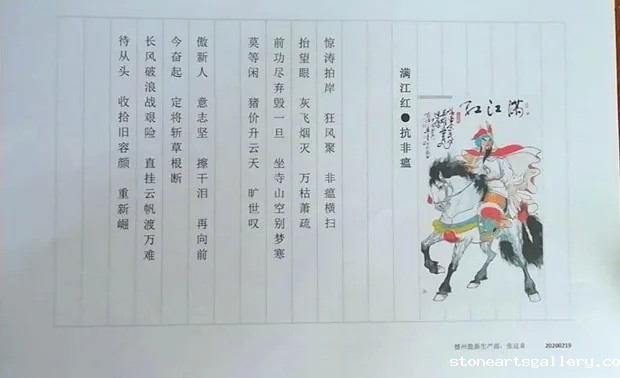 滿江紅
满江红●抗非瘟
惊涛拍岸 狂风聚 非瘟横扫
抬望眼 灰飞烟灭 万枯萧疏
前功尽弃毁一旦 坐寺山空别梦寒
莫等闲 猪价升云天 旷世叹
傲新人 意志坚 擦干泪 再向前
今奋起 定将斩草根断
长风破浪战艰险 直挂云帆渡万难
待从头 收拾旧容颜 重新崛
生产部 20200219
stoneartsgallery.com